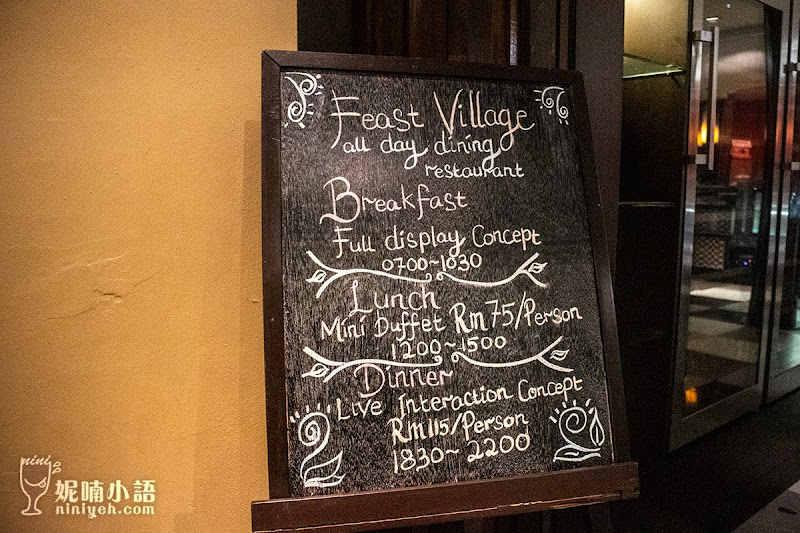 Feast Village
all day dining
restaurant
Breakfast
Full display Concept
0700~1030
Lunch
Mini Buffet Rm 75/Person
1200~1500
Dinner
Live Interaction Concept
Rm115/Person
1830~2200
nini
妮喃小語
niniyeh.com